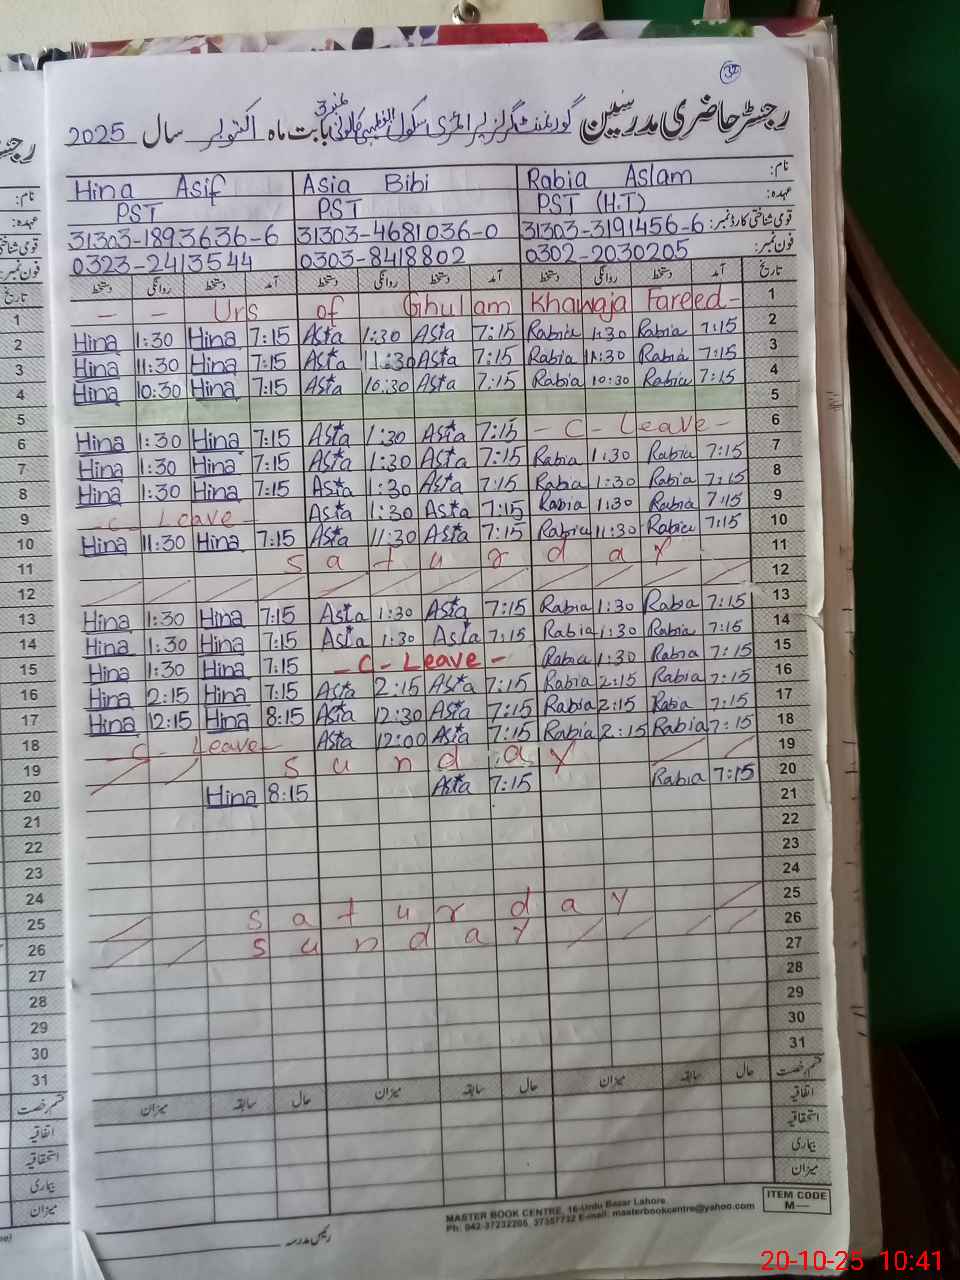 32
رجسٹر حاضری مدرسین گورنمنٹ گرلز پرائمری سکول بابت ماہ اکتوبر سال 2025
نام: Rabia Aslam Asia Bibi Hina Asif
عہدہ: PST (H.T) PST PST
قومی شناختی کارڈ نمبر: 31303-3191456-6 31303-4681036-0 31303-1893636-6
فون نمبر: 0302-2030205 0303-8418802 0323-2413544
تاریخ آمد دستخط روانگی دستخط آمد دستخط روانگی دستخط آمد دستخط روانگی دستخط
- - Urs of Ghulam Khawaja Fareed- 1
Hina 1:30 Hina 7:15 Asta 1:30 Asta 7:15 Rabia 1:30 Rabia 7:15 2
Hina 11:30 Hina 7:15 Asta 11:30 Asta 7:15 Rabia 11:30 Rabia 7:15 3
Hina 10:30 Hina 7:15 Asta 10:30 Asta 7:15 Rabia 10:30 Rabia 7:15 4
5
Hina 1:30 Hina 7:15 Asta 1:30 Asta 7:15 - C - Leave - 6
Hina 1:30 Hina 7:15 Asta 1:30 Asta 7:15 Rabia 1:30 Rabia 7:15 7
Hina 1:30 Hina 7:15 Asta 1:30 Asta 7:15 Rabia 1:30 Rabia 7:15 8
- C - Leave - Asta 1:30 Asta 7:15 Rabia 1:30 Rabia 7:15 9
Hina 11:30 Hina 7:15 Asta 11:30 Asta 7:15 Rabia 11:30 Rabia 7:15 10
S a t u r d a y 11
12
Hina 1:30 Hina 7:15 Asta 1:30 Asta 7:15 Rabia 1:30 Rabia 7:15 13
Hina 1:30 Hina 7:15 Asta 1:30 Asta 7:15 Rabia 1:30 Rabia 7:15 14
Hina 1:30 Hina 7:15 - C - Leave - Rabia 1:30 Rabia 7:15 15
Hina 2:15 Hina 7:15 Asta 2:15 Asta 7:15 Rabia 2:15 Rabia 7:15 16
Hina 12:15 Hina 8:15 Asta 12:30 Asta 7:15 Rabia 2:15 Rabia 7:15 17
- C - Leave - Asta 12:00 Asta 7:15 Rabia 2:15 Rabia 7:15 18
S u n d a y 19
Hina 8:15 Asta 7:15 Rabia 7:15 20
21
22
23
24
S a t u r d a y 25
S u n d a y 26
27
28
29
30
31
قسم رخصت حال سابقہ میزان حال سابقہ میزان حال سابقہ میزان
اتفاقیہ
استحقاقیہ
بیماری
میزان
رئیس مدرسہ
MASTER BOOK CENTRE, 16-Urdu Bazar Lahore.
Ph: 042-37232205, 37357732 E-mail: masterbookcentre@yahoo.com
ITEM CODE
M—
20-10-25 10:41